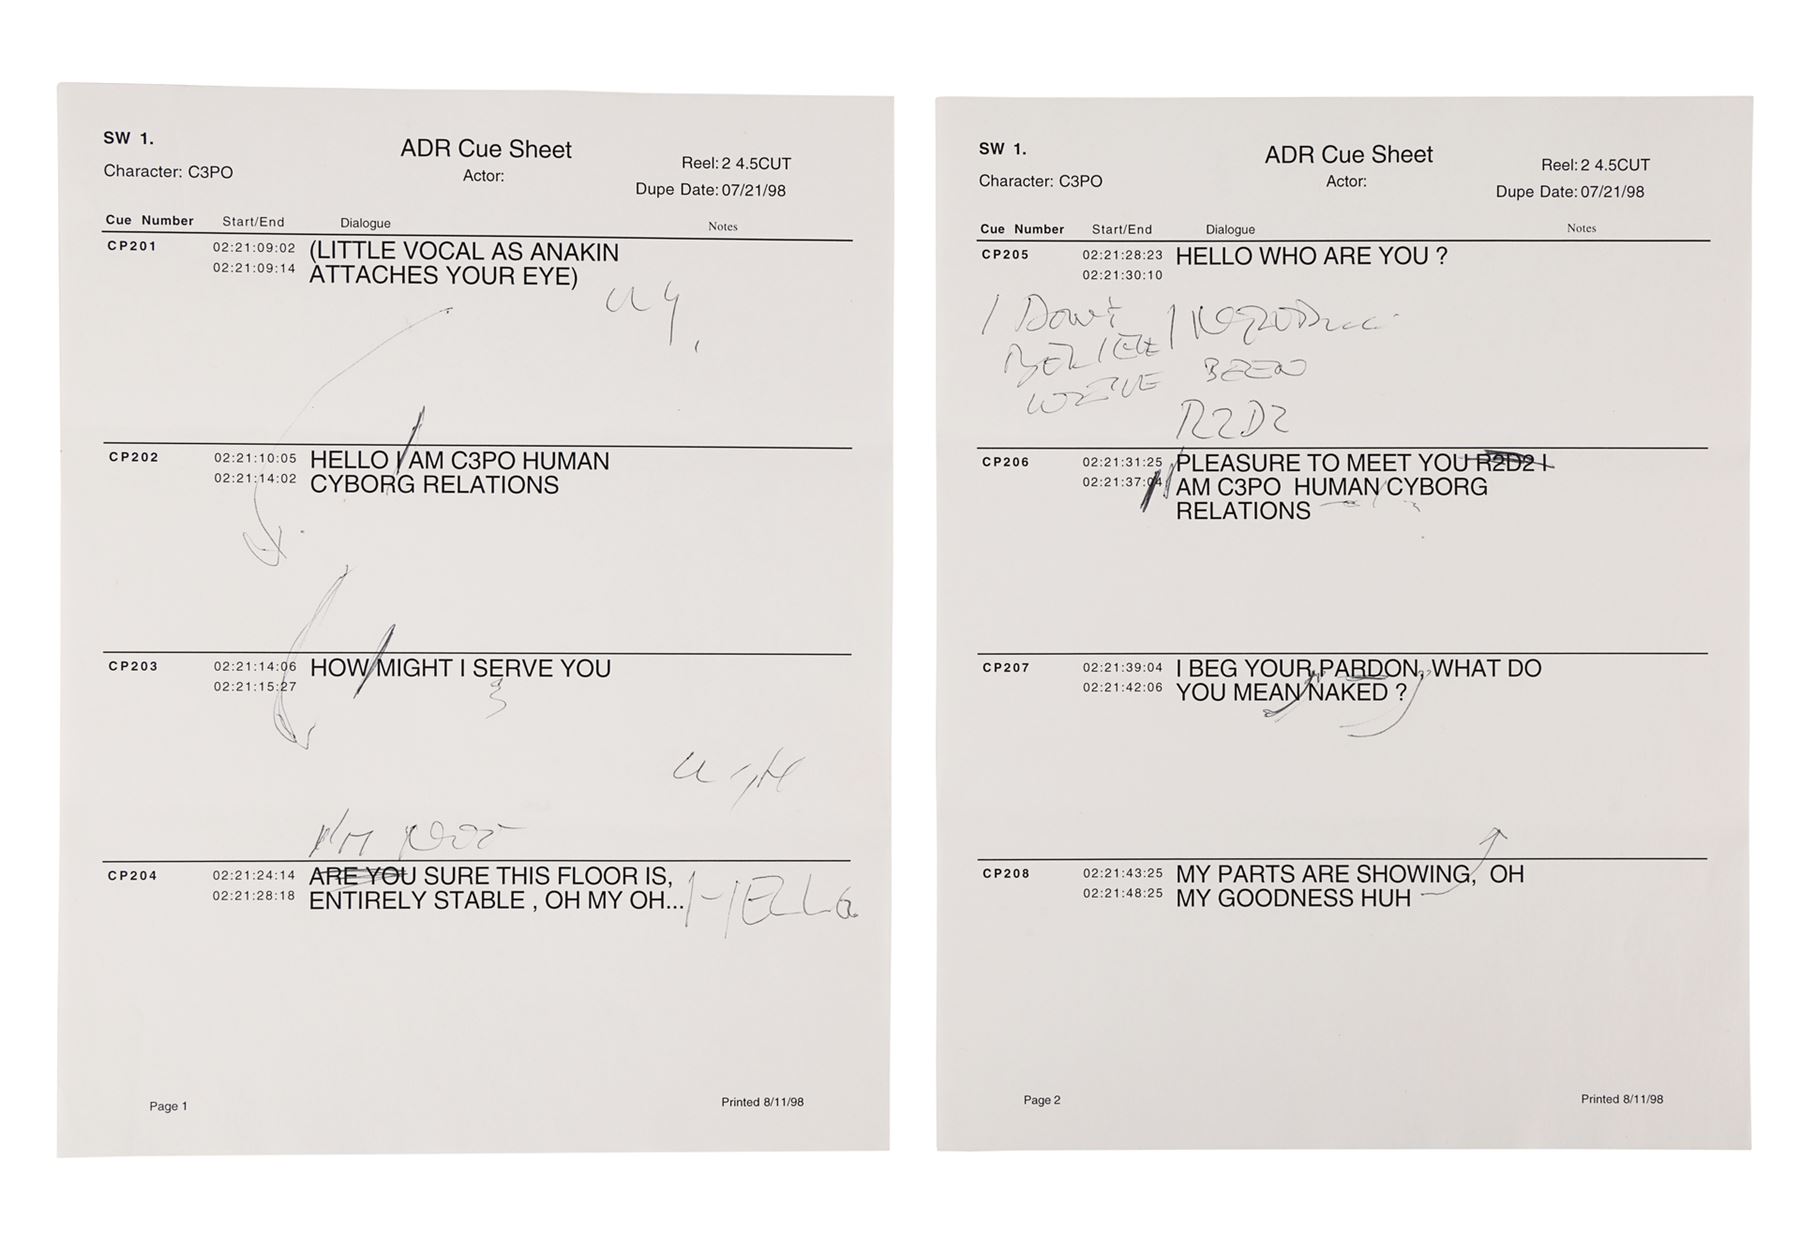 SW 1.
ADR Cue Sheet
Reel: 2 4.5CUT
Character: C3PO
Actor:
Dupe Date: 07/21/98
Cue Number Start/End Dialogue Notes
CP201 02:21:09:02 (LITTLE VOCAL AS ANAKIN
02:21:09:14 ATTACHES YOUR EYE)
CP202 02:21:10:05 HELLO I AM C3PO HUMAN
02:21:14:02 CYBORG RELATIONS
CP203 02:21:14:06 HOW MIGHT I SERVE YOU
02:21:15:27
I'M NOT
CP204 02:21:24:14 ARE YOU SURE THIS FLOOR IS,
02:21:28:18 ENTIRELY STABLE , OH MY OH... HELLO
Page 1
Printed 8/11/98
SW 1.
ADR Cue Sheet
Reel: 2 4.5CUT
Character: C3PO
Actor:
Dupe Date: 07/21/98
Cue Number Start/End Dialogue Notes
CP205 02:21:28:23 HELLO WHO ARE YOU ?
02:21:30:10
I DON'T
BELIEVE
WE'VE BEEN
R2D2
CP206 02:21:31:25 PLEASURE TO MEET YOU R2D2 I
02:21:37:04 AM C3PO HUMAN CYBORG
RELATIONS
CP207 02:21:39:04 I BEG YOUR PARDON, WHAT DO
02:21:42:06 YOU MEAN NAKED ?
CP208 02:21:43:25 MY PARTS ARE SHOWING, OH
02:21:48:25 MY GOODNESS HUH
Page 2
Printed 8/11/98